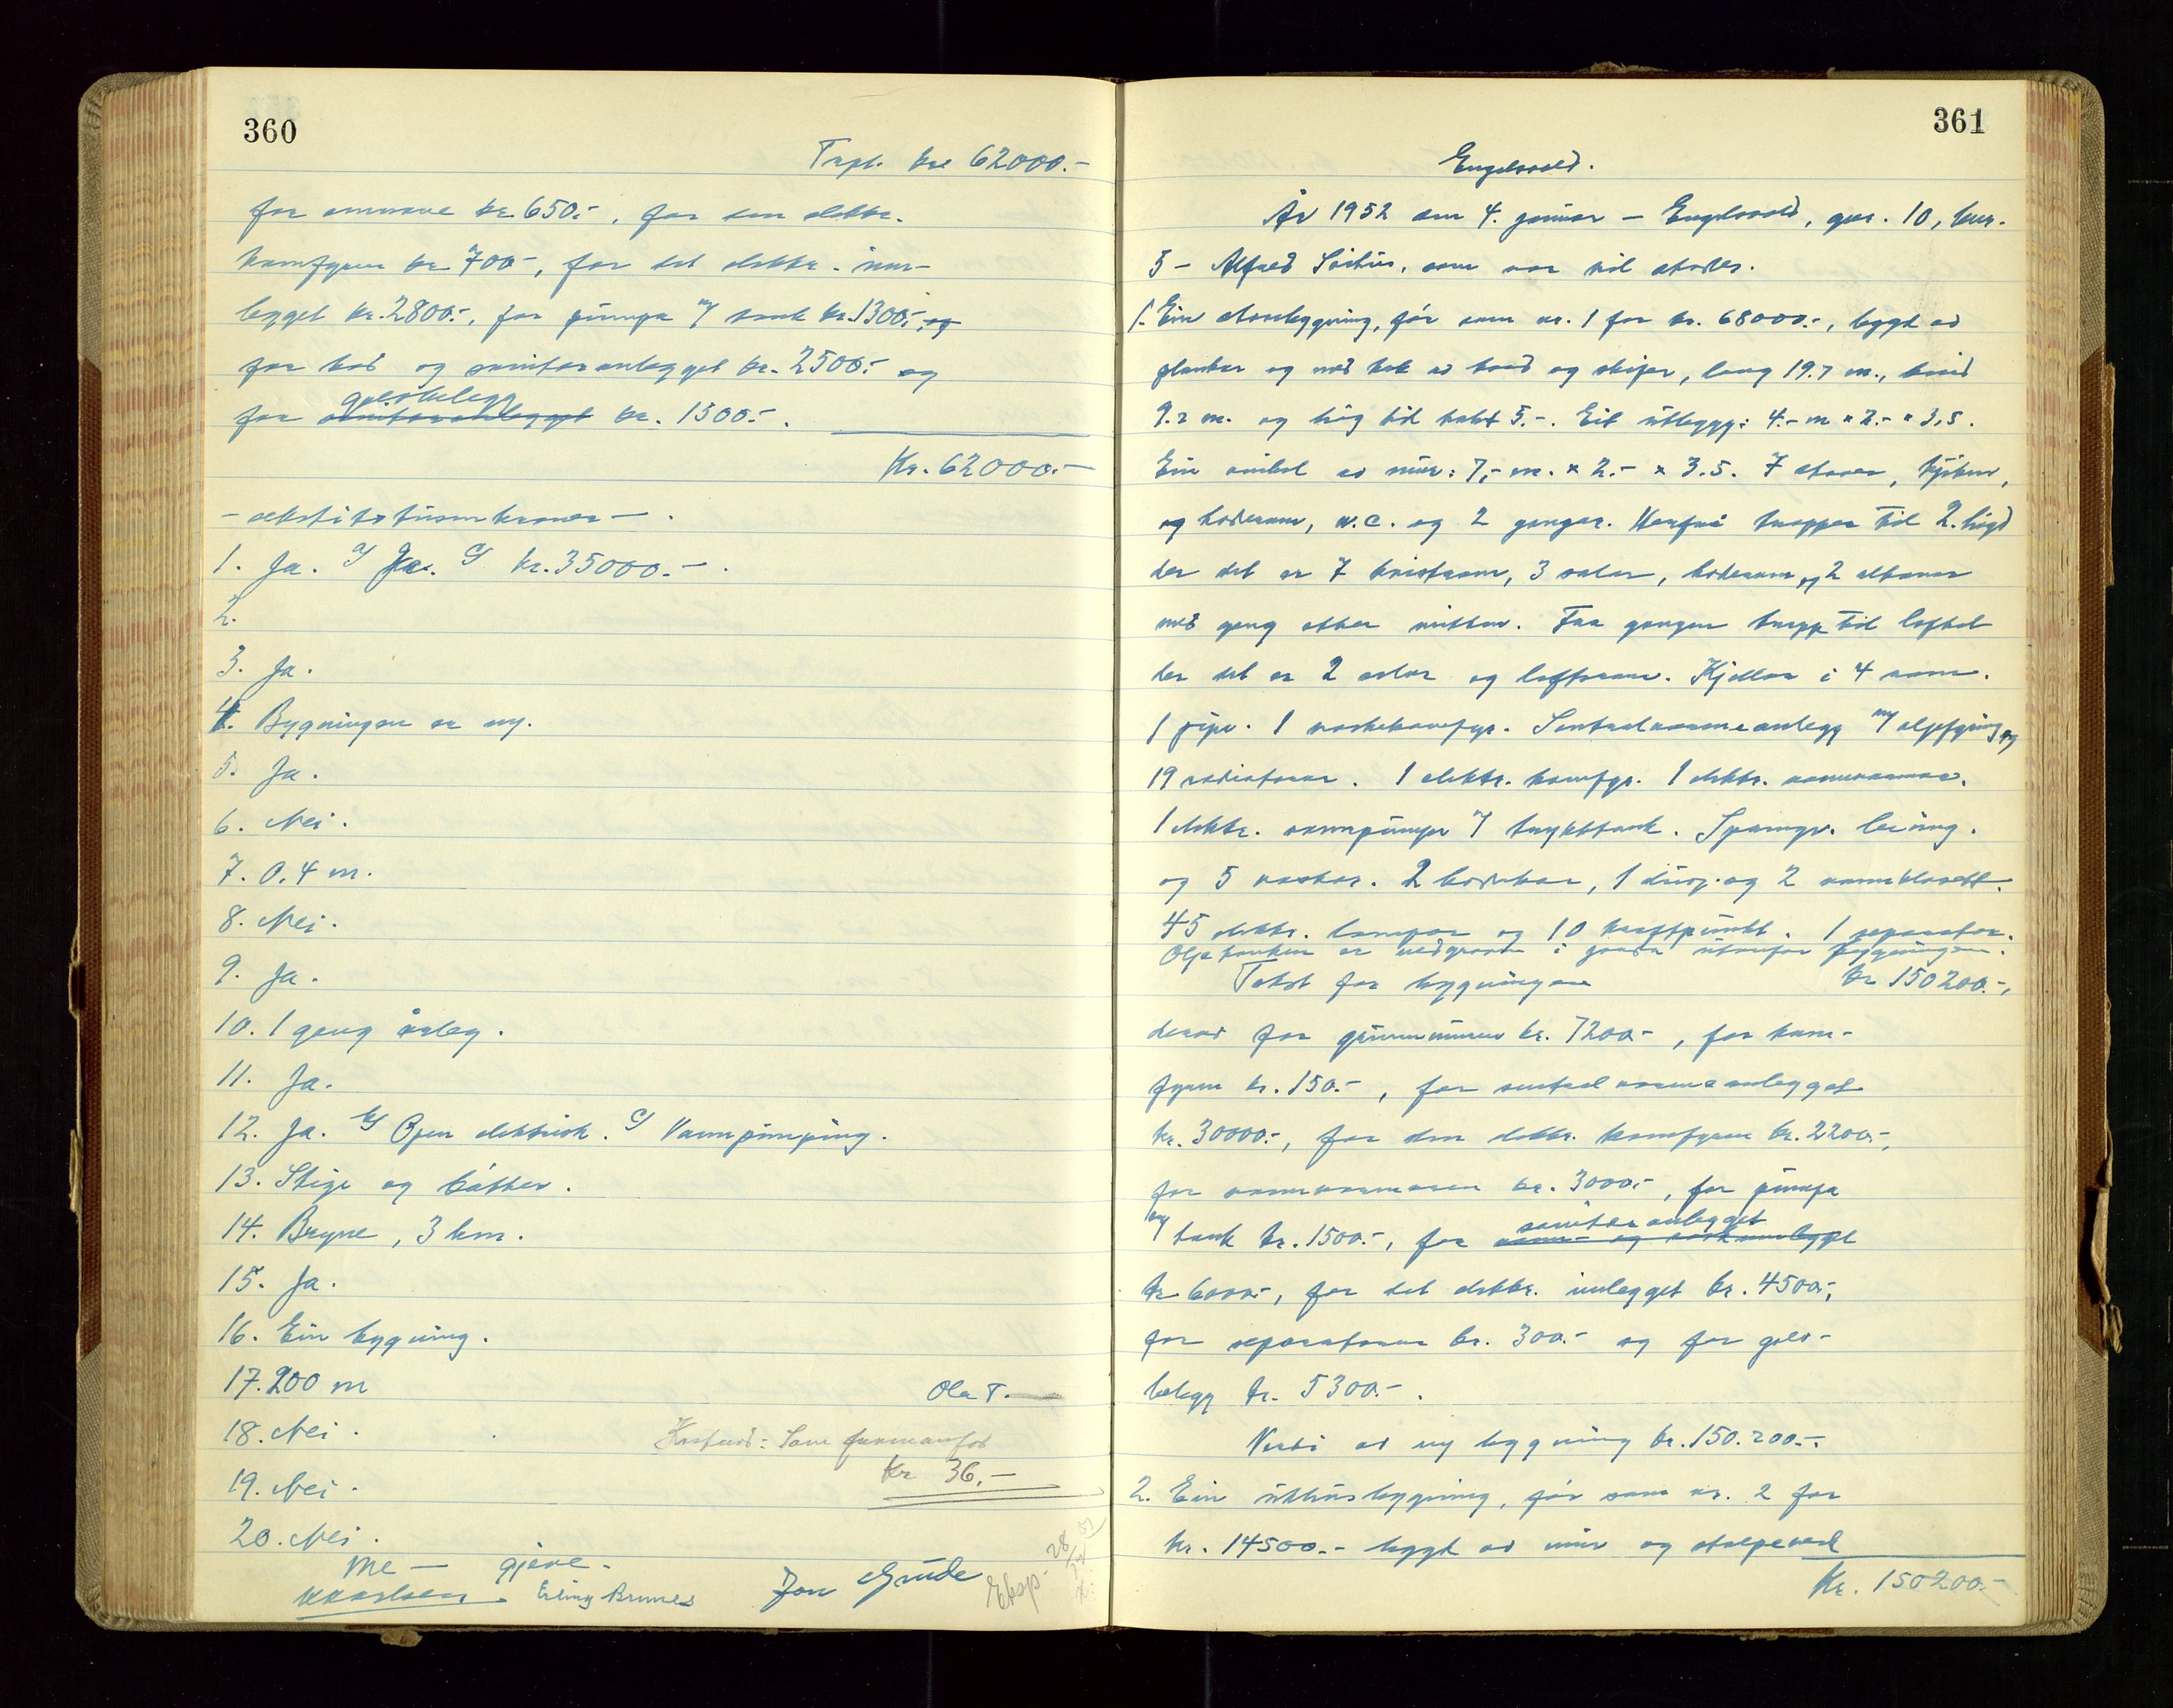 360
Trspt. kr. 62000.-
for omnane kr. 650.-, for den elektr.
komfyren kr. 700.-, for det elektr. inn-
legget kr. 2800.-, for pumpa m/ tank kr. 1300.-, og
for bad og sanitæranlegget kr. 2500.- og
golvbelegg
for sanitæranlegget kr. 1500.-.
Kr. 62000.-
- sekstitotusenkroner - .
1. Ja. b/ Ja. c/ kr. 35000.-.
2.
3. Ja.
4. Bygningen er ny.
5. Ja.
6. Nei.
7. 0.4 m.
8. Nei.
9. Ja.
10. 1 gang årleg.
11. Ja.
12. Ja. b/ Open elektrisk. c/ Vannpumping.
13. Stige og bøtter.
14. Bryne, 3 km.
15. Ja.
16. Ein bygning.
17. 200 m
Ola T.
18. Nei.
Kostnad: Som framanfor
Kr 36.-
19. Nei.
20. Nei.
Me — gjeve.
Erling Brunes Jon Grude
Eksp. 28
361
Engelsvold.
År 1952 den 4. januar - Engelsvold, gnr. 10, bnr.
5 - Alfred , som var til stades.
1. Ein stovebygning, før som nr. 1 for kr. 68000.-, bygt av
plankar og med tak av bord og skifer, lang 19.7 m., breid
9.2 m. og høg til taket 5.-. Eit utbygg: 4.- m × 2.- × 3,5.
Ein vinkel av mur: 7.- m. × 2.- × 3.5. 7 stover, kjøken,
og baderom, w.c. og 2 gangar. Herfrå trapper til 2. høgd
der det er 7 kvistrom, 3 salar, baderom og 2 altanar
med gang etter midten. Frå gangen trapp til loftet
der det er 2 salar og loftsrom. Kjellar i 4 rom.
1 pipe. 1 vaskekomfyr. Sentralvarmeanlegg m/ oljefyring og
19 radiatorar. 1 elektr. komfyr. 1 elektr. vannvarmar.
1 elektr. vannpumpe m/ trykktank. Springv. leiing.
og 5 vaskar. 2 badekar, 1 dusj og 2 vannklosett.
45 elektr. lampor og 10 kraftpunkt. 1 separator.
Oljetanken er nedgraven i jorda utanfor bygningen.
Takst for bygningen kr 150200.-,
derav for grunnmuren kr. 7200.-, for kom-
fyren kr. 150.-, for sentralvarmeanlegget
kr. 30000.-, for den elektr. komfyren kr. 2200.-,
for vannvarmaren kr. 3000.-, for pumpa
sanitæranlegget
m/ tank kr. 1500.-, for vann- og vaskanlegget
kr 6000.-, for det elektr. innlegget kr. 4500.-,
for separatoren kr. 300.- og for golv-
belegg kr. 5300.-.
Verdi av ny bygning kr. 150.200.-.
2. Ein uthusbygning, før som nr. 2 for
kr. 14500.- bygt av mur og stolpeverk
Kr. 150200.-